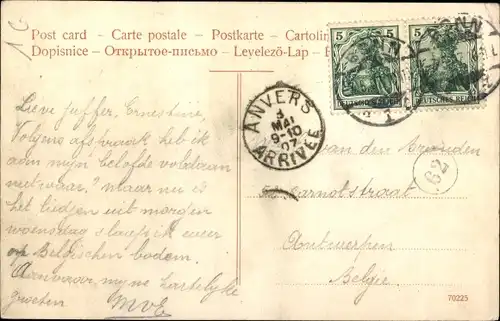 Post card - Carte postale - Postkarte - Cartolin
Dopisnice - Открытое-письмо - Levelező-Lap -
5 5
DEUTSCHES REICH
BONN
ANVERS
3
MAI
9-10
07
ARRIVÉE
Lieve juffer, Ernestine,
Volgens afspraak heb ik
aan mijn belofde voldaan
nietwaar? maar nu is
het lijden uit morden
woensdag slaap ik euer
op Belgischen bodem.
Aanvaar, myne hartelyke
groeten
MVE
van der
Carnotstraat
62
Antwerpen
Belgie
70225